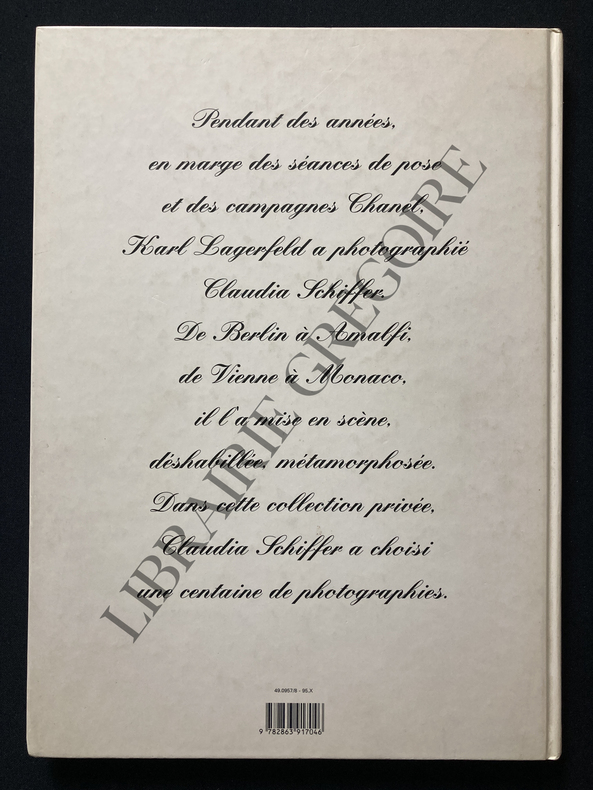 Pendant des années,
en marge des séances de pose
et des campagnes Chanel,
Karl Lagerfeld a photographié
Claudia Schiffer.
De Berlin à Amalfi,
de Vienne à Monaco,
il l'a mise en scène,
déshabillée, métamorphosée.
Dans cette collection privée,
Claudia Schiffer a choisi
une centaine de photographies.
LIBRAIRIE GREGOIRE
49.0957/8 - 95.X
9 782863 917046